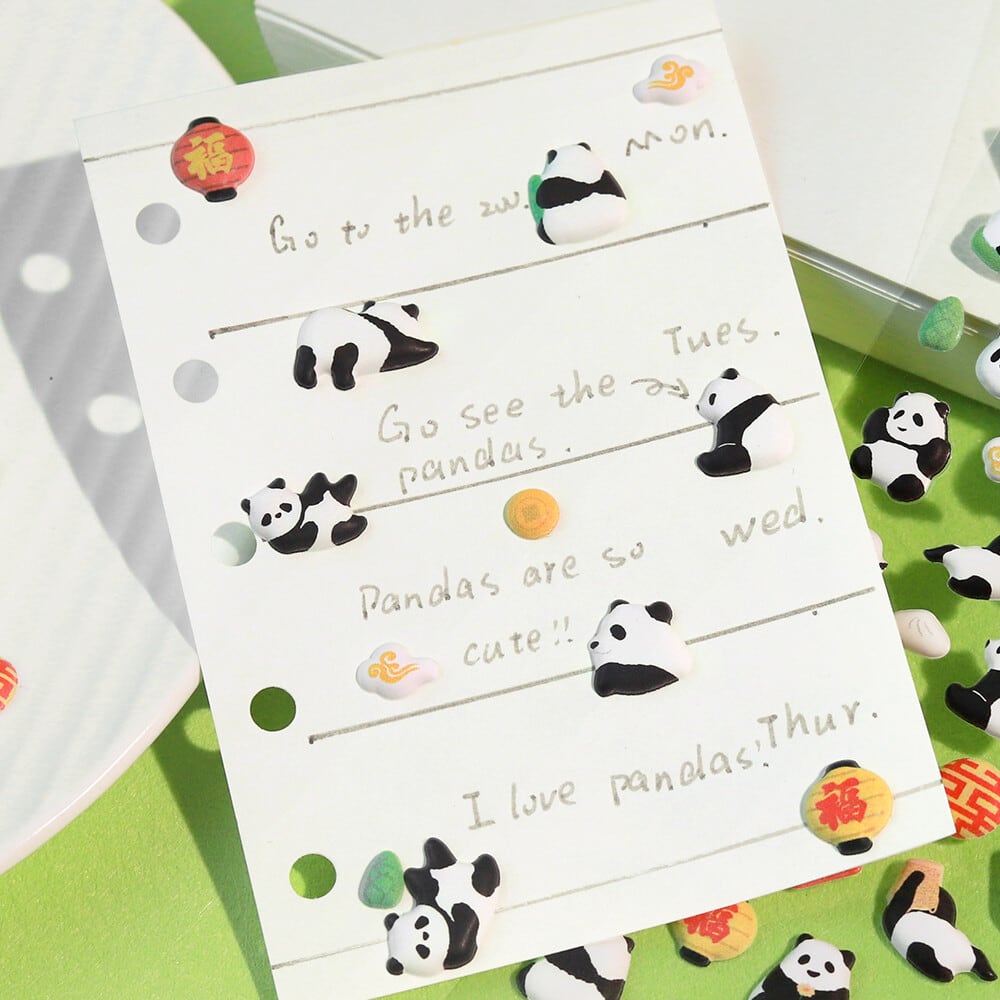 福
Mon.
Go to the zoo.
Tues.
Go see the
pandas.
wed.
Pandas are so
cute!!
Thur.
I love pandas!
福
福